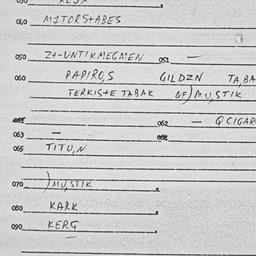 040 MITORSTABES
050 Z+-UNTIKMEGMEN 051 —
060 PAPIROS GILDZN TABA
TERKISTE TABAK OF) MUSTIK
062 — Q CIGAR
063 —
065 TITUN
070 )MUSTIK
080 KARK
090 KERG